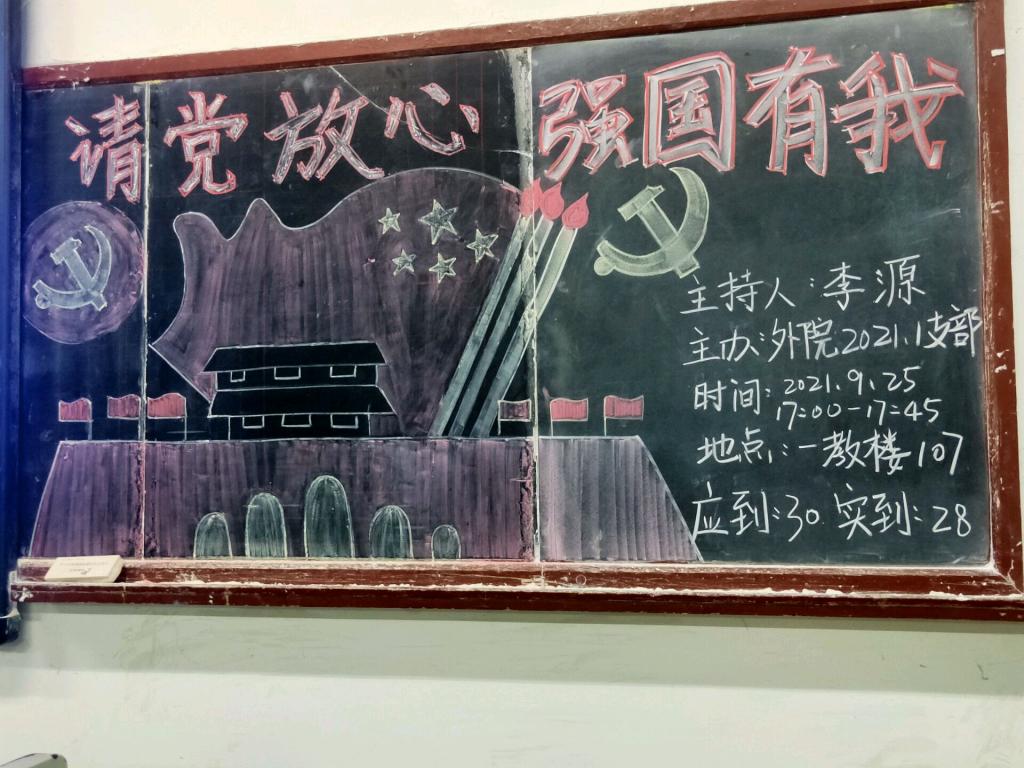 请党放心 强国有我
主持人:李源
主办:外院2021.1支部
时间:2021.9.25
17:00-17:45
地点:一教楼107
应到:30 实到:28